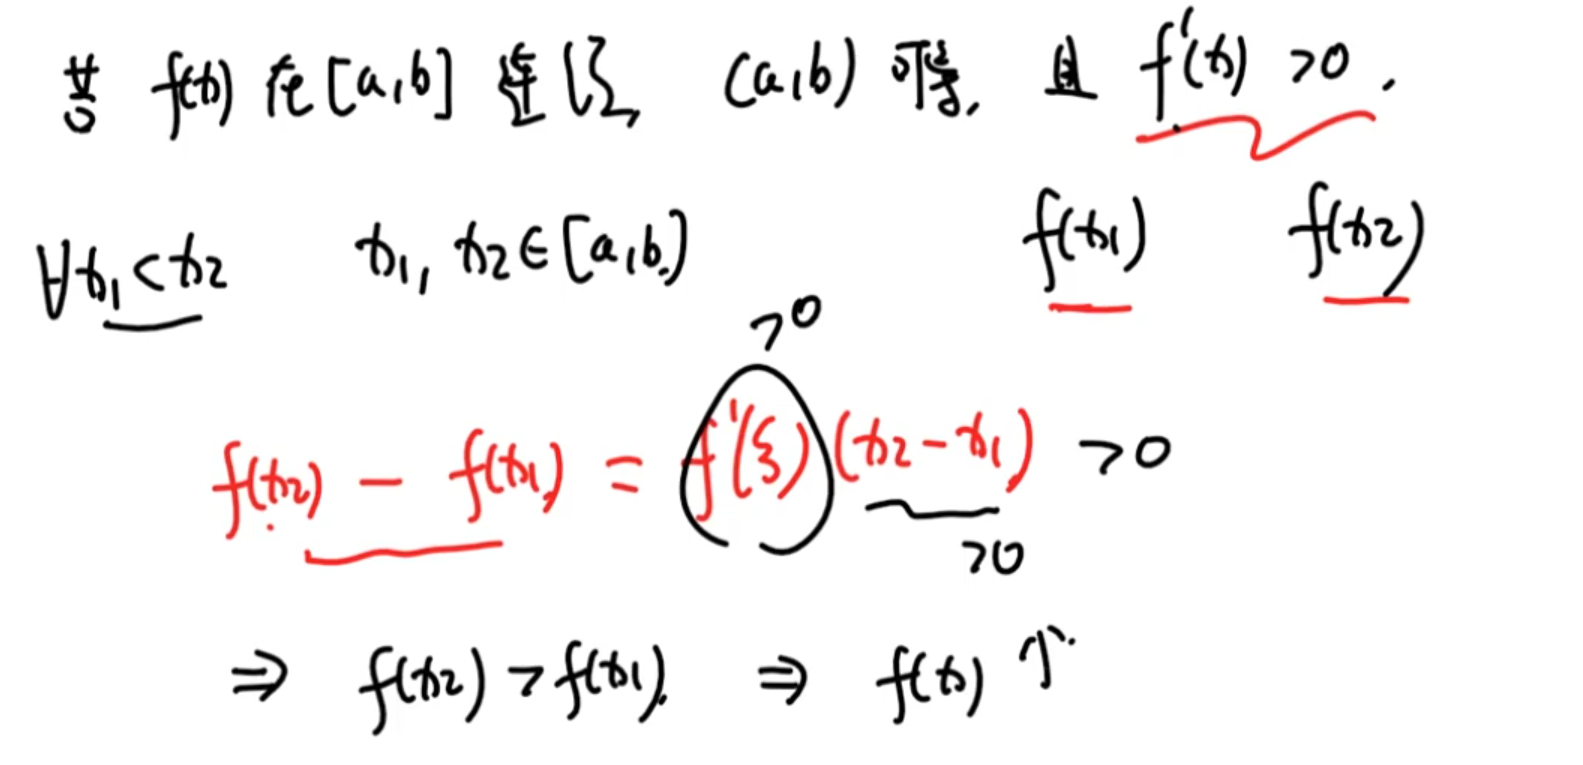 若 f(x) 在 [a,b] 连续, (a,b) 可导, 且 f'(x) >0.
∀x₁<x₂ x₁, x₂∈[a,b] f(x₁) f(x₂)
>0
f(x₂) - f(x₁) = f'(ξ)(x₂-x₁) >0
>0
⇒ f(x₂) > f(x₁). ⇒ f(x) ↑.